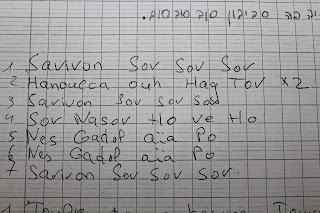 סביבון סוב סוב סוב.
1 Sarivon Sov Sov Sov
2 Hanoucca ouh Hag Tov x2
3 Sarivon Sov Sov Sov
4 Sov Nasov Ho ve Ho
5 Nes Gadol aïa Po
6 Nes Gadol aïa Po
7 Sarivon Sov Sov Sov.
1